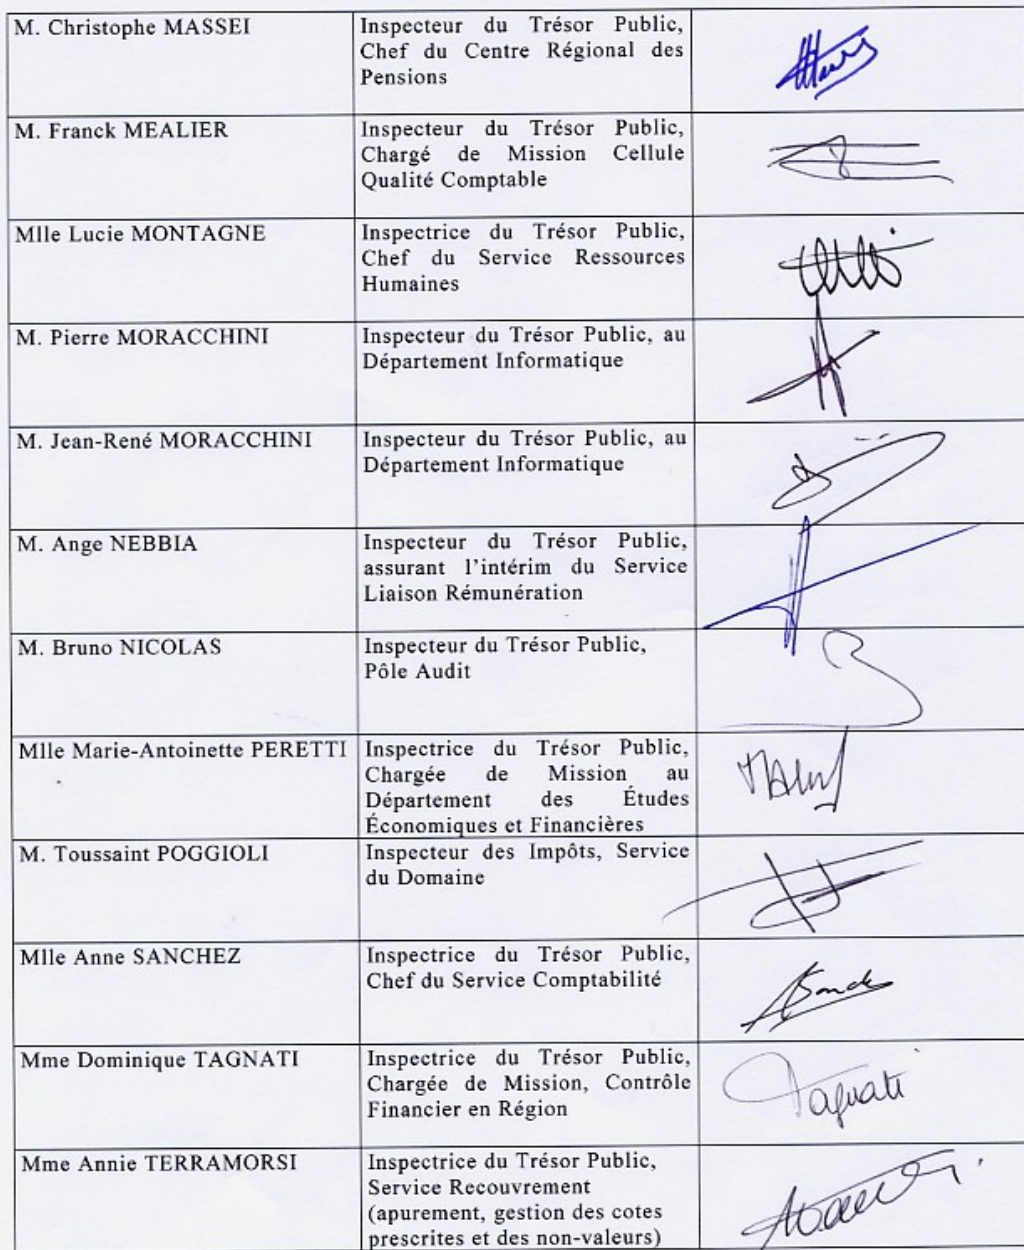 M. Christophe MASSEI
Inspecteur du Trésor Public,
Chef du Centre Régional des
Pensions
M. Franck MEALIER
Inspecteur du Trésor Public,
Chargé de Mission Cellule
Qualité Comptable
Mlle Lucie MONTAGNE
Inspectrice du Trésor Public,
Chef du Service Ressources
Humaines
M. Pierre MORACCHINI
Inspecteur du Trésor Public, au
Département Informatique
M. Jean-René MORACCHINI
Inspecteur du Trésor Public, au
Département Informatique
M. Ange NEBBIA
Inspecteur du Trésor Public,
assurant l'intérim du Service
Liaison Rémunération
M. Bruno NICOLAS
Inspecteur du Trésor Public,
Pôle Audit
Mlle Marie-Antoinette PERETTI
Inspectrice du Trésor Public,
Chargée de Mission au
Département des Études
Économiques et Financières
M. Toussaint POGGIOLI
Inspecteur des Impôts, Service
du Domaine
Mlle Anne SANCHEZ
Inspectrice du Trésor Public,
Chef du Service Comptabilité
Mme Dominique TAGNATI
Inspectrice du Trésor Public,
Chargée de Mission, Contrôle
Financier en Région
Tagnati
Mme Annie TERRAMORSI
Inspectrice du Trésor Public,
Service Recouvrement
(apurement, gestion des cotes
prescrites et des non-valeurs)